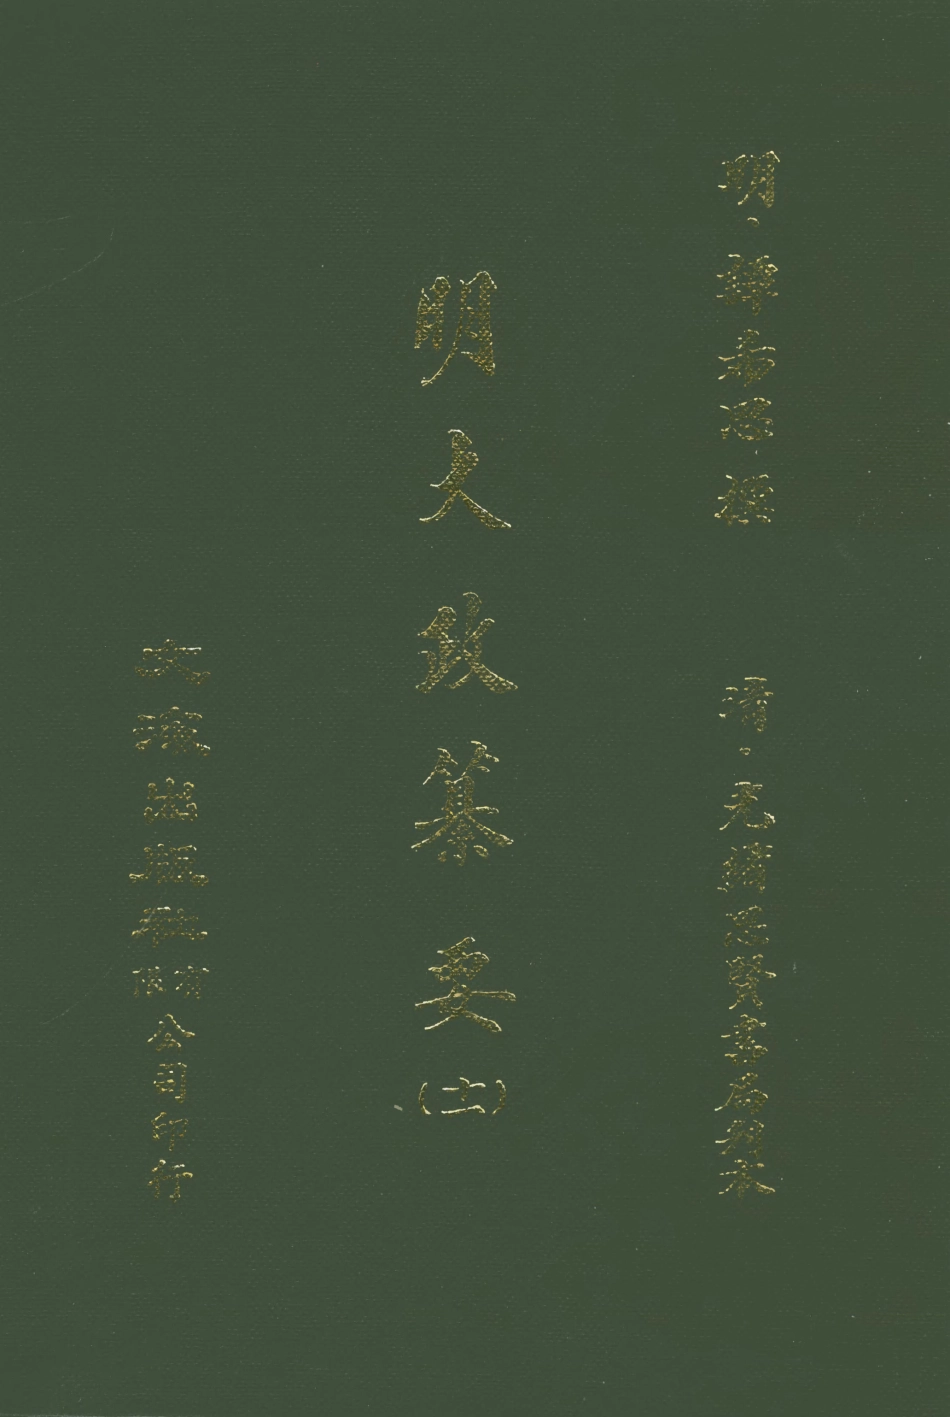 明·譚希思撰　清·光緒思賢書局刊本
明大政纂要(十一)
文海出版社有限公司印行